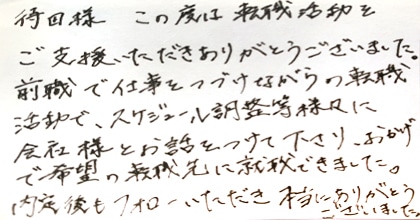 待田様 この度は転職活動を
ご支援いただきありがとうございました。
前職で仕事をつづけながらの転職
活動で、スケジュール調整等様々に
会社様とお話をつけて下さり、おかげ
で希望の転職先に就職できました。
内定後もフォローいただき本当にありがとう
ございました